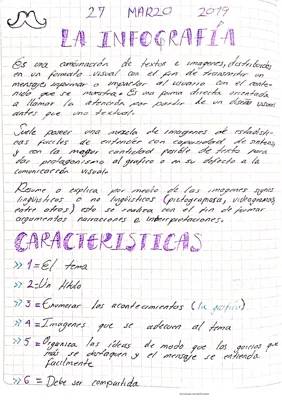 27 MARZO 2019
LA INFOGRAFÍA
Es una combinación de textos e imagenes, distribuidos
en un formato visual con el fin de transmitir un
mensaje informar o impactar al usuario con el conte-
nido que se muestra. Es una forma directa orientada
a llamar la atención por partir de un diseño visual
antes que uno textual.
Suele poseer una mezcla de imagenes de estadísti-
cas faciles de entender con capacidad de síntesis
y con la menor cantidad posible de textos para
dar protagonismo al grafico o en su defecto a la
comunicación visual.
Resume o explica por medio de las imagenes signos
lingüísticos o no lingüísticos (pictogramas, videogramas,
entre otros) esto se realiza con el fin de formar
argumentos narraciones e interpretaciones.
CARACTERISTICAS
>> 1 = El tema
>> 2 = Un título
>> 3 = Enumerar los acontecimientos (la grafica)
>> 4 = Imagenes que se adecuen al tema
>> 5 = Organiza las ideas de modo que los
más se destaquen y el mensaje se entienda
facilmente
>> 6 = Debe ser compartida